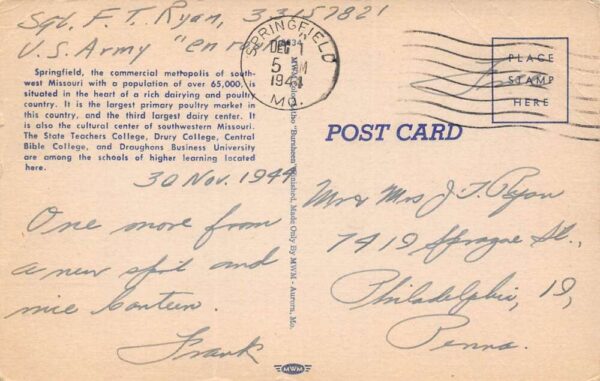 Sgt. F. T. Ryan, 33157821
U.S. Army "en route"
Springfield, the commercial metropolis of south-
west Missouri with a population of over 65,000, is
situated in the heart of a rich dairying and poultry
country. It is the largest primary poultry market in
this country, and the third largest dairy center. It
is also the cultural center of southwestern Missouri.
The State Teachers College, Drury College, Central
Bible College, and Draughons Business University
are among the schools of higher learning located
here.
30 Nov. 1944
One more from
a new spot and
nice Canteen.
Frank
SPRINGFIELD
DEC 1
5 M
1944
MO.
MWM Color-Litho "Burnbeen" Finished. Made Only By MWM - Aurora, Mo.
MWM
PLACE
STAMP
HERE
Free
POST CARD
Mr & Mrs J. F. Ryan
7419 Sprague St.,
Philadelphia, 19,
Penna.